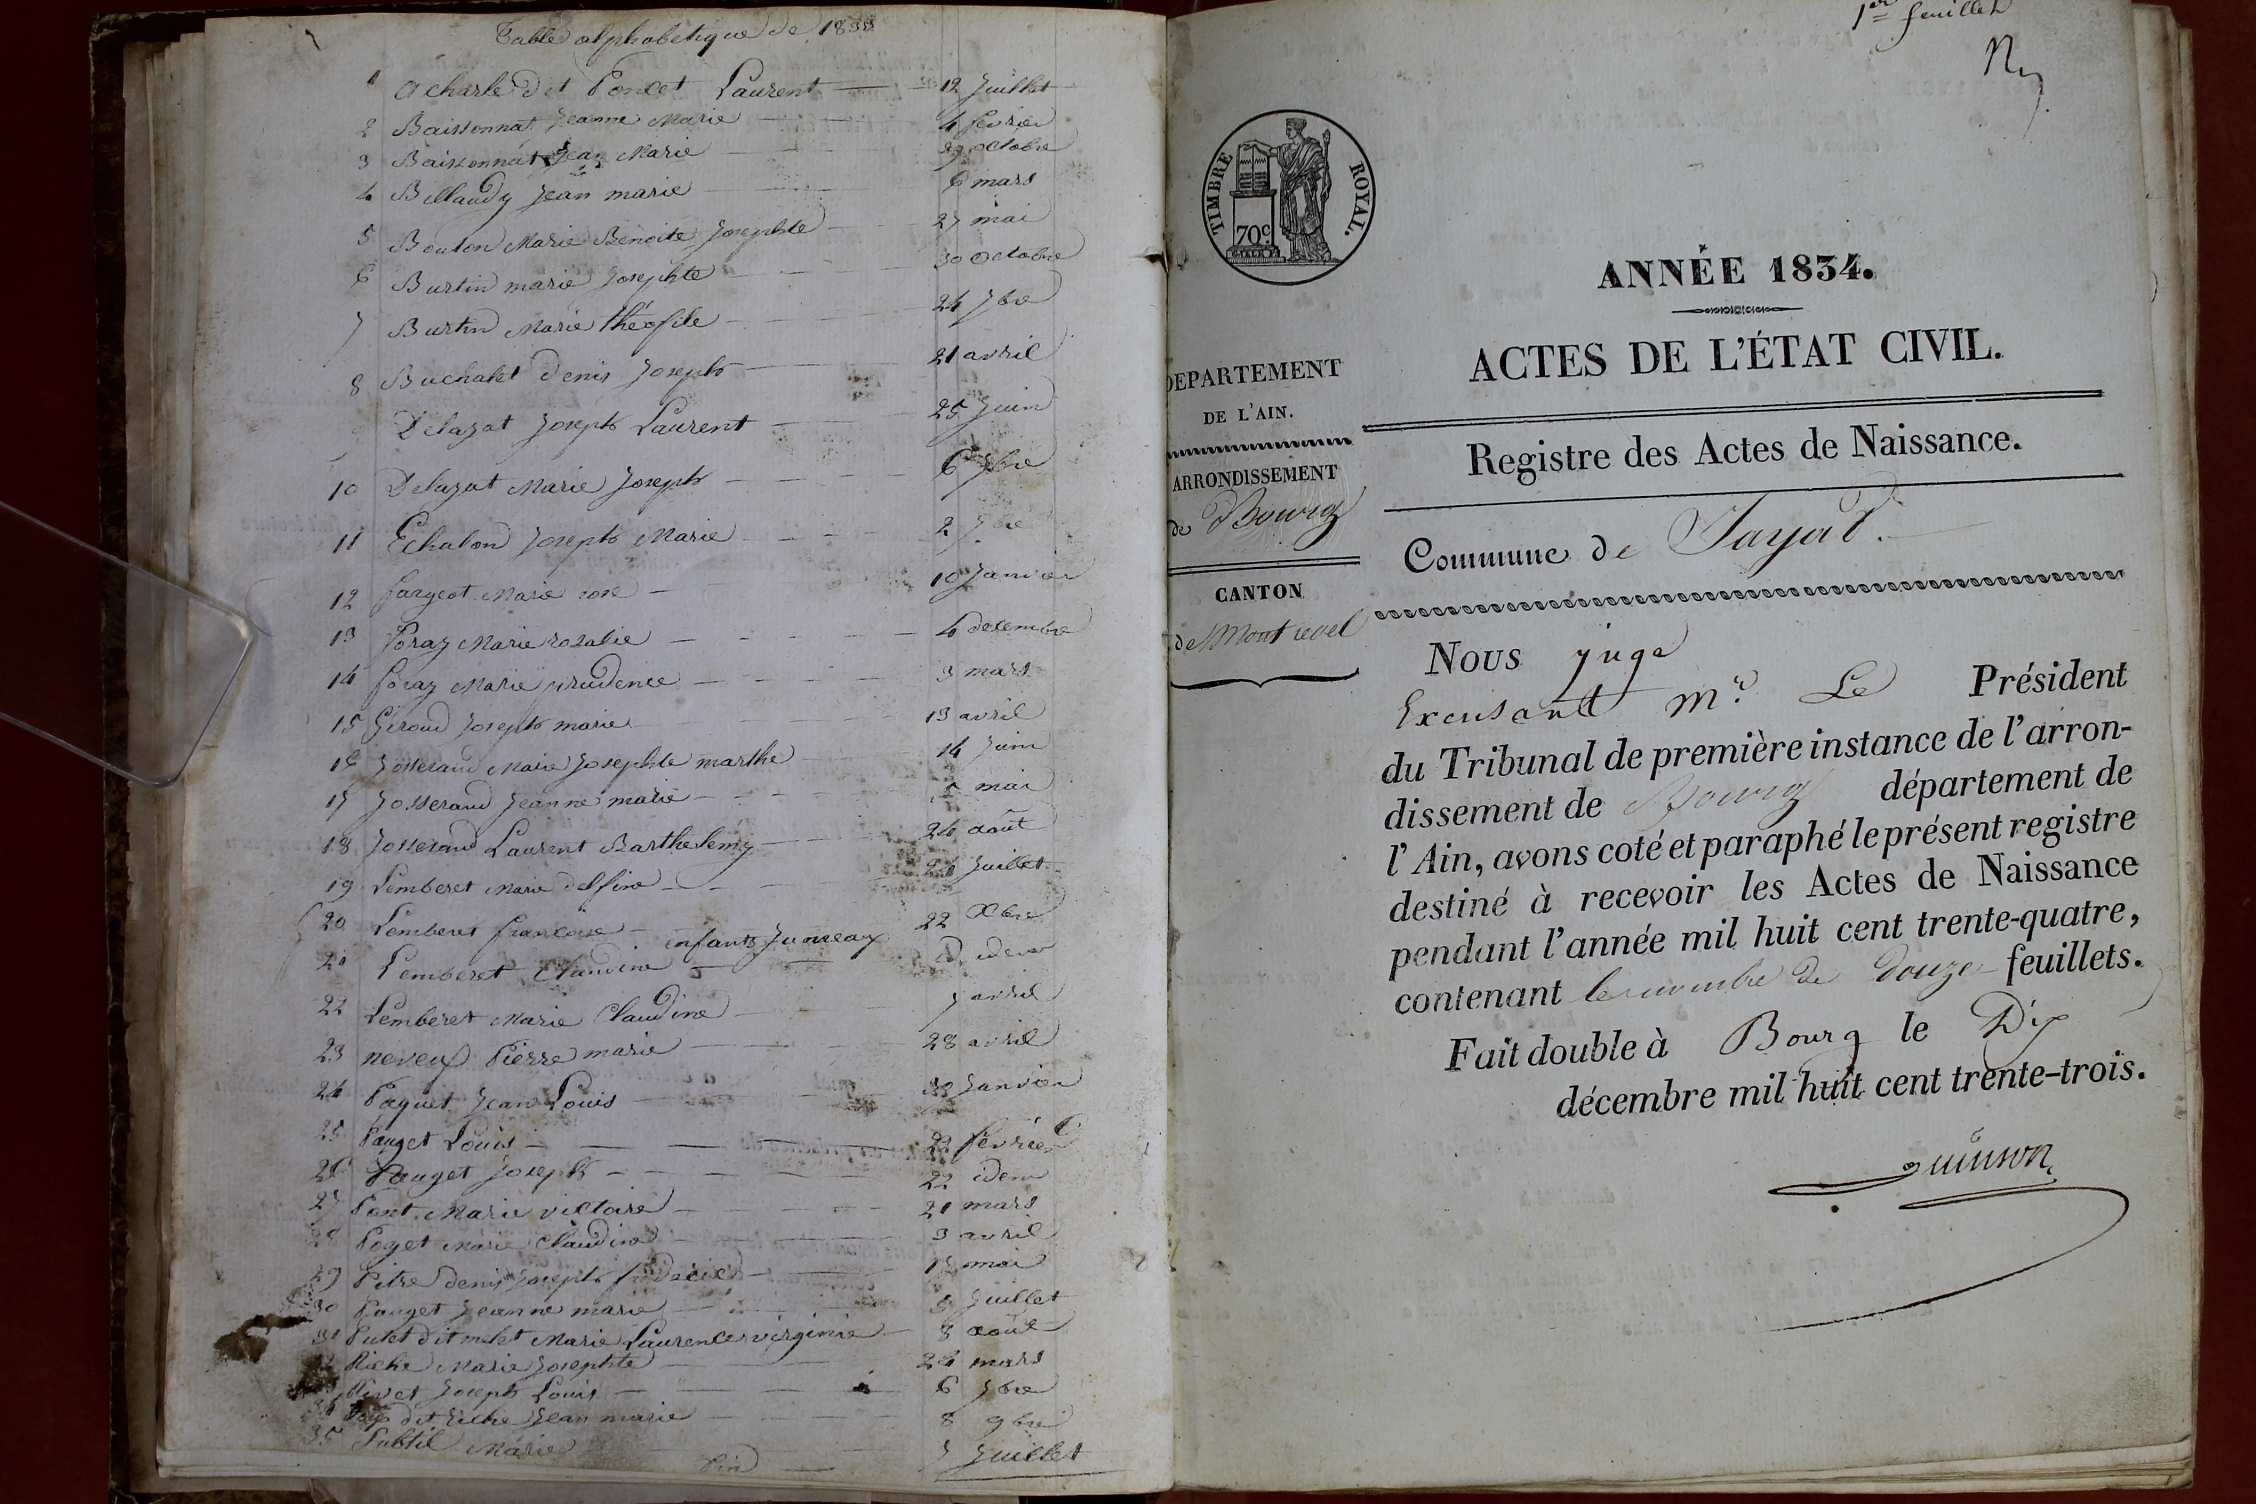 Table alphabetique de 1833
1 acharle dit Poncet Laurent 12 Juillet
2 Baissonnat Jeanne Marie 4 fevrier
3 Baissonnat Jean Marie 29 octobre
4 Billaudy Jean marie 6 mars
5 Bouton Marie Benoite Josephte 27 mai
6 Burtin marie Josephte 30 octobre
7 Burtin Marie théofile 24 7bre
8 Buchalet denis Joseph 21 avril
Delayat Joseph Laurent 25 Juin
10 Delayat Marie Joseph 6 7bre
11 Echalon Joseph Marie 2 7bre
12 fargeot Marie rose 10 Janvier
13 foray Marie rosalie 4 decembre
14 foray Marie prudence 3 mars
15 Giroud Joseph marie 13 avril
16 Josserand Marie Josephte marthe 14 Juin
17 Josserand Jeanne marie mai
18 Josserand Laurent Barthelemy 24 août
19 Lemberet Marie delfine 24 Juillet
20 Lemberet françoise 22 Xbre
enfants Jumeaux
21 Lemberet Claudine idem
22 Lemberet Marie Claudine 7 avril
23 neveux Pierre marie 28 avril
24 Paquet Jean Louis 30 Janvier
25 Pauget Louis 22 février
26 Pauget Joseph 22 idem
27 Pont Marie victoire 21 mars
28 Poget Marie Claudine 3 avril
29 Pitre denis Joseph frederic 13 mai
30 Pauget Jeanne marie 5 Juillet
31 Putet dit milet Marie Laurence virginie 8 août
Riche Marie Josephte 24 mars
Rivet Joseph Louis 6 7bre
dit riche Jean marie 8 9bre
35 Subtil Marie 7 Juillet
fin
1er feuillet
TIMBRE ROYAL.
70c.
DEPARTEMENT
DE L'AIN.
ARRONDISSEMENT
de Bourg
CANTON
de Montrevel
ANNÉE 1834.
ACTES DE L'ÉTAT CIVIL.
Registre des Actes de Naissance.
Commune de Jayat.
Nous juge
Excusant Mr. Le Président
du Tribunal de première instance de l'arron-
dissement de Bourg département de
l'Ain, avons coté et paraphé le présent registre
destiné à recevoir les Actes de Naissance
pendant l'année mil huit cent trente-quatre,
contenant le nombre de douze feuillets.
Fait double à Bourg le Dix
décembre mil huit cent trente-trois.
quinson